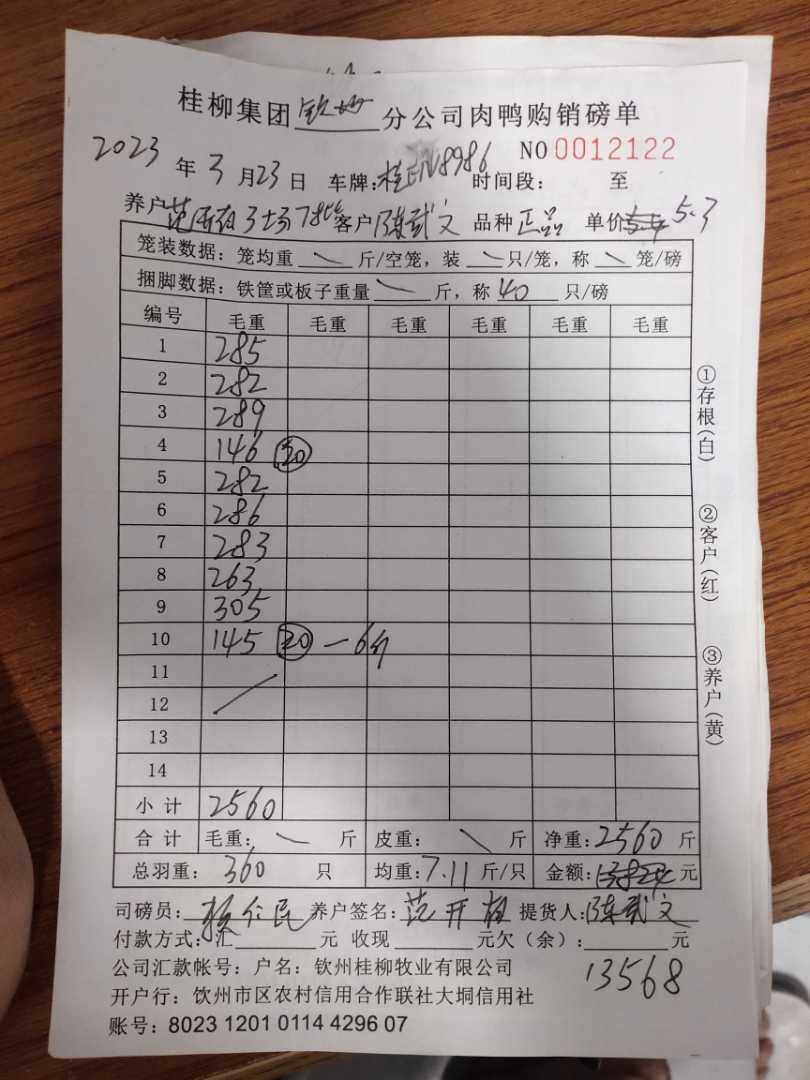 桂柳集团钦州分公司肉鸭购销磅单
NO 0012122
2023年3月23日 车牌:桂 N8986 时间段: 至
养户 客户陈武文 品种正品 单价 5.3
笼装数据:笼均重 斤/空笼,装 只/笼,称 笼/磅
捆脚数据:铁筐或板子重量 斤,称40只/磅
编号 毛重 毛重 毛重 毛重 毛重 毛重
1 285
2 282
3 289
4 146 20
5 282
6 286
7 283
8 263
9 305
10 145 20 一6斤
11
12
13
14
小计 2560
合计 毛重: 斤 皮重: 斤 净重:2560斤
总羽重:360只 均重:7.11斤/只 金额: 元
司磅员:杨仁民 养户签名:范开植 提货人:陈武文
付款方式:汇 元 收现 元欠(余): 元
13568
公司汇款帐号:户名:钦州桂柳牧业有限公司
开户行:饮州市区农村信用合作联社大垌信用社
账号:8023 1201 0114 4296 07
①存根(白)
②客户(红)
③养户(黄)